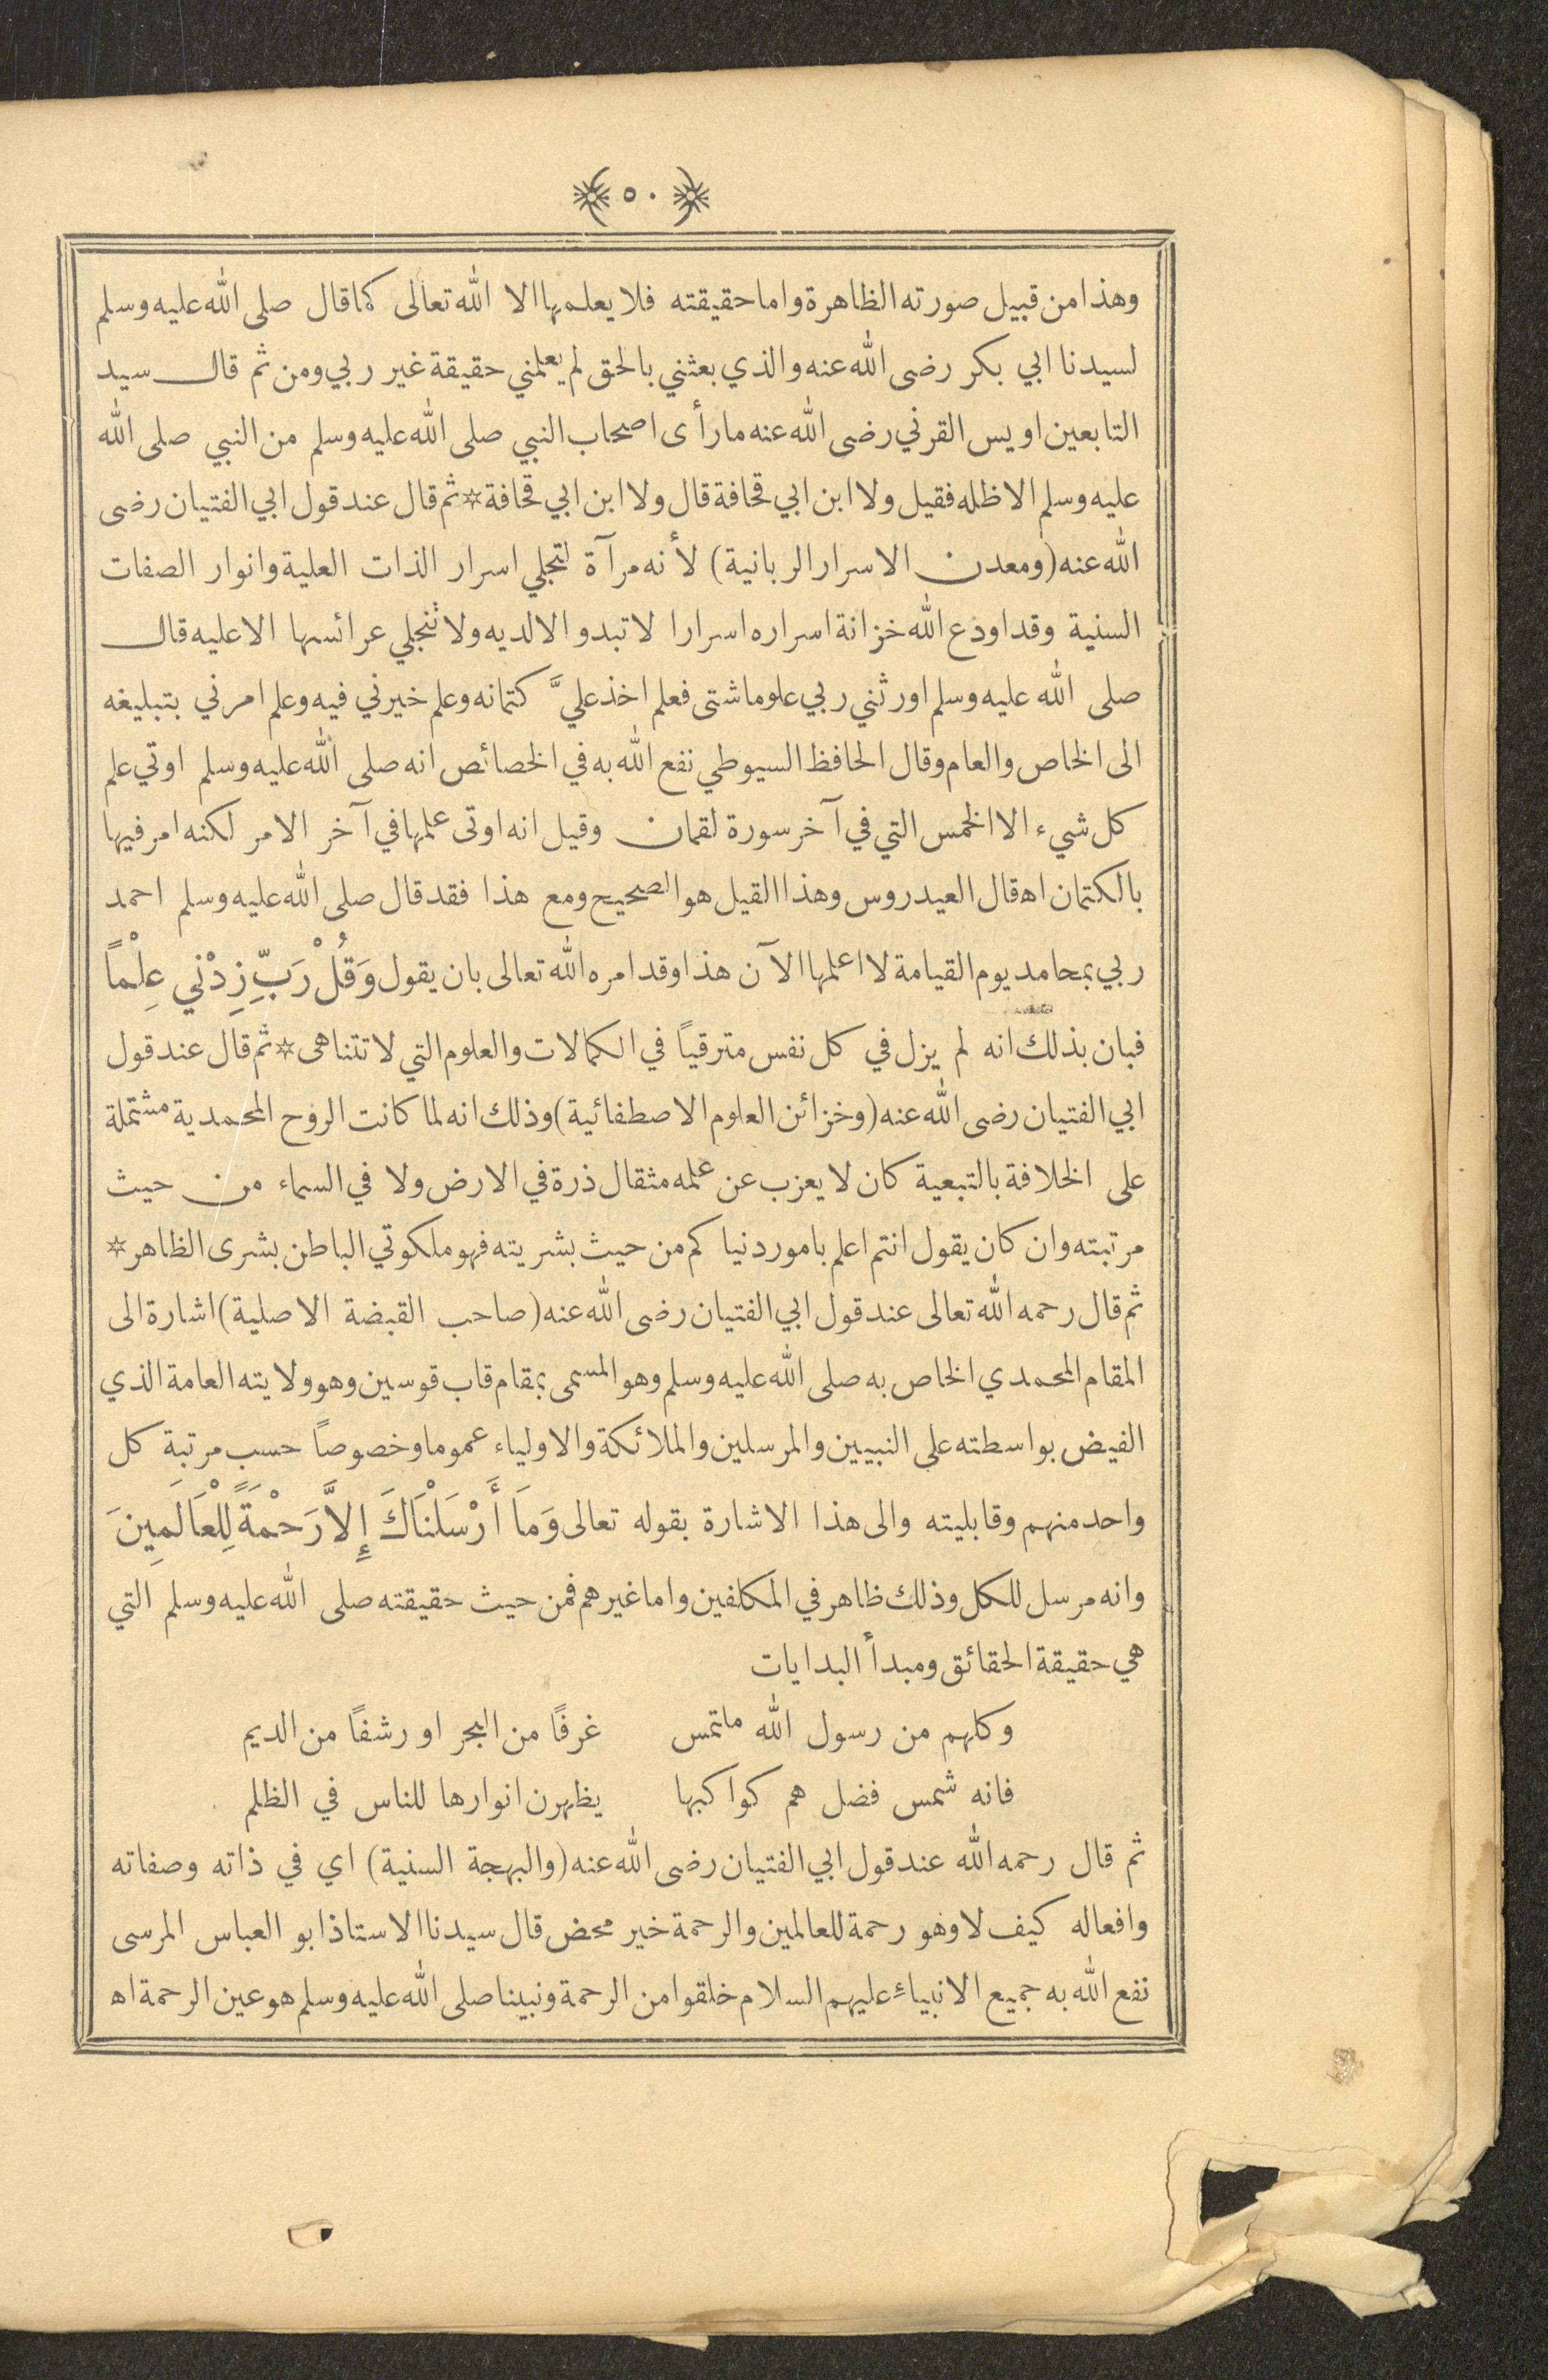 ٥٠
وهذا من قبيل صورته الظاهرة واما حقيقته فلا يعلمها الا الله تعالى كما قال صلى الله عليه وسلم
لسيدنا ابي بكر رضى الله عنه والذي بعثني بالحق لم يعلمني حقيقة غير ربي ومن ثم قال سيد
التابعين اويس القرني رضى الله عنه ما رأى اصحاب النبي صلى الله عليه وسلم من النبي صلى الله
عليه وسلم الا ظله فقيل ولا ابن ابي قحافة قال ولا ابن ابي قحافة * ثم قال عند قول ابي الفتيان رضى
الله عنه (ومعدن الاسرار الربانية) لأنه مرآة لتجلي اسرار الذات العلية وانوار الصفات
السنية وقد اودع الله خزانة اسراره اسرارا لا تبدو الا لديه ولا تنجلي عرائسها الا عليه قال
صلى الله عليه وسلم اورثني ربي علوما شتى فعلم اخذ عليَّ كتمانه وعلم خيرني فيه وعلم امرني بتبليغه
الى الخاص والعام وقال الحافظ السيوطي نفع الله به في الخصائص انه صلى الله عليه وسلم اوتي علم
كل شيء الا الخمس التي في آخر سورة لقمان وقيل انه اوتى علمها في آخر الامر لكنه امر فيها
بالكتمان اه قال العيدروس وهذا القيل هو الصحيح ومع هذا فقد قال صلى الله عليه وسلم احمد
ربي بمحامد يوم القيامة لا اعلمها الآن هذا وقد امره الله تعالى بان يقول وَقُلْ رَبِّ زِدْنِي عِلْماً
فبان بذلك انه لم يزل في كل نفس مترقياً في الكمالات والعلوم التي لا تتناهى * ثم قال عند قول
ابي الفتيان رضى الله عنه (وخزائن العلوم الاصطفائية) وذلك انه لما كانت الروح المحمدية مشتملة
على الخلافة بالتبعية كان لا يعزب عن علمه مثقال ذرة في الارض ولا في السماء من حيث
مرتبته وان كان يقول انتم اعلم بامور دنياكم من حيث بشريته فهو ملكوتي الباطن بشرى الظاهر *
ثم قال رحمه الله تعالى عند قول ابي الفتيان رضى الله عنه (صاحب القبضة الاصلية) اشارة الى
المقام المحمدي الخاص به صلى الله عليه وسلم وهو المسمى بمقام قاب قوسين وهو ولايته العامة الذي
الفيض بواسطته على النبيين والمرسلين والملائكة والاولياء عموما وخصوصاً حسب مرتبة كل
واحد منهم وقابليته والى هذا الاشارة بقوله تعالى وَمَا أَرْسَلْنَاكَ إِلاَّ رَحْمَةً لِلْعَالَمِينَ
وانه مرسل للكل وذلك ظاهر في المكلفين واما غيرهم فمن حيث حقيقته صلى الله عليه وسلم التي
هي حقيقة الحقائق ومبدأ البدايات
وكلهم من رسول الله ملتمس غرفاً من البحر او رشفاً من الديم
فانه شمس فضل هم كواكبها يظهرن انوارها للناس في الظلم
ثم قال رحمه الله عند قول ابي الفتيان رضى الله عنه (والبهجة السنية) اي في ذاته وصفاته
وافعاله كيف لا وهو رحمة للعالمين والرحمة خير محض قال سيدنا الاستاذ ابو العباس المرسى
نفع الله به جميع الانبياء عليهم السلام خلقوا من الرحمة ونبينا صلى الله عليه وسلم هو عين الرحمة اه